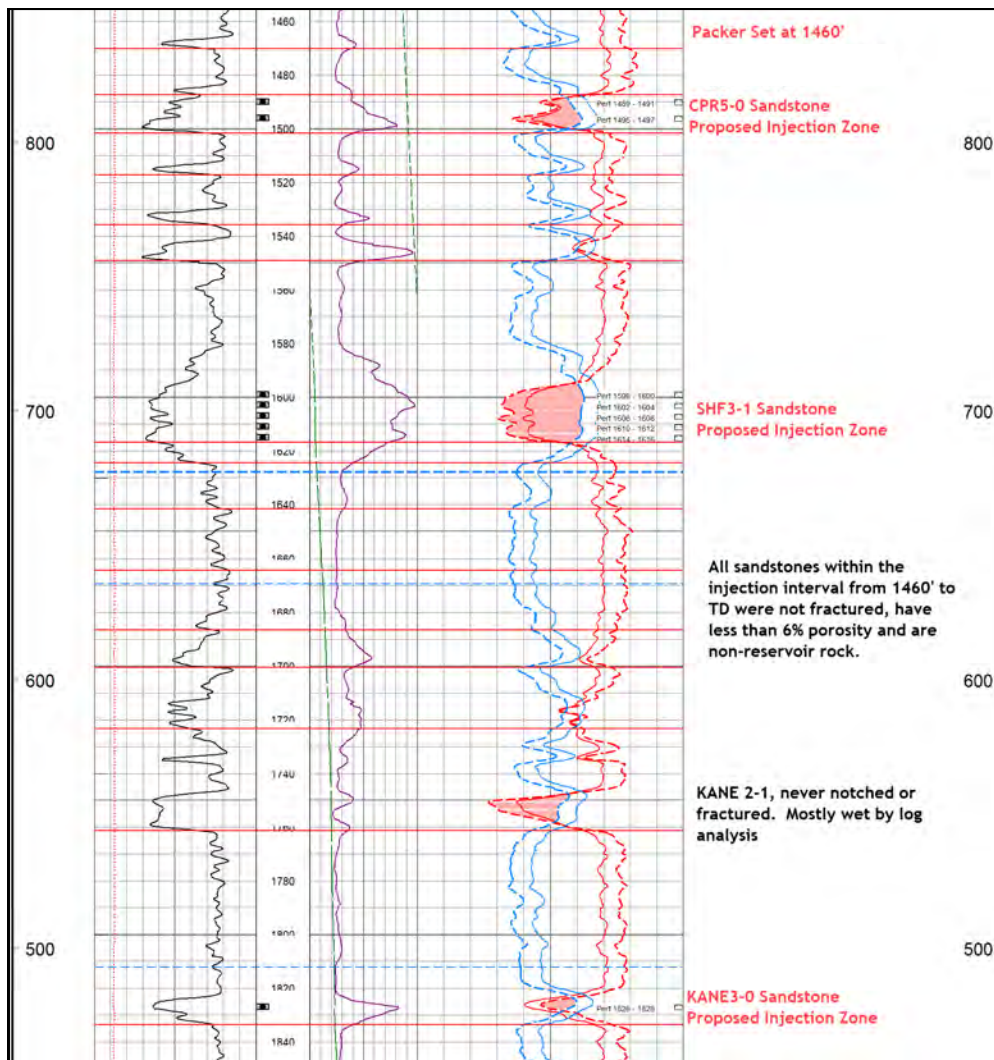 1460
Packer Set at 1460'
1480
Perf 1489 - 1491
CPR5-0 Sandstone
Proposed Injection Zone
Perf 1496 - 1497
1500
800
800
1520
1540
1560
1580
1600
Perf 1598 - 1600
Perf 1602 - 1604
Perf 1606 - 1608
Perf 1610 - 1612
Perf 1614 - 1616
700
SHF3-1 Sandstone
Proposed Injection Zone
700
1620
1640
1660
1680
All sandstones within the
injection interval from 1460' to
TD were not fractured, have
less than 6% porosity and are
non-reservoir rock.
1700
600
600
1720
1740
KANE 2-1, never notched or
fractured. Mostly wet by log
analysis
1760
1780
1800
500
500
1820
KANE3-0 Sandstone
Proposed Injection Zone
1840